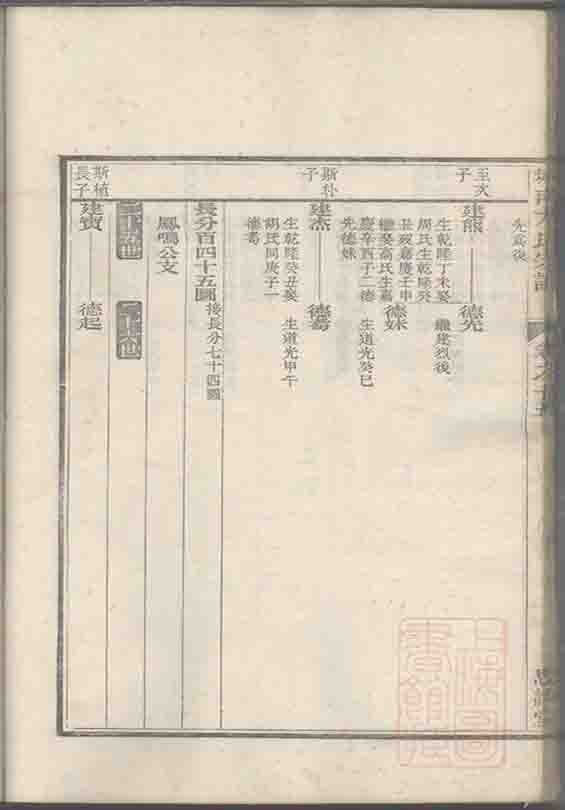 先嵩後
至次子
建熊
德先
生乾隆丁未娶
繼建烈後
周氏生乾隆癸
丑歿嘉慶壬申
德妹
繼娶高氏生嘉
慶辛酉子二德
生道光癸巳
先德妹
斯朴子
建杰
生乾隆癸丑娶
生道光甲午
胡氏同庚子一
長分百四十五圖
接長分七十四圖
鳳鳴公支
斯植長子
建寶
德起
上海圖書館藏